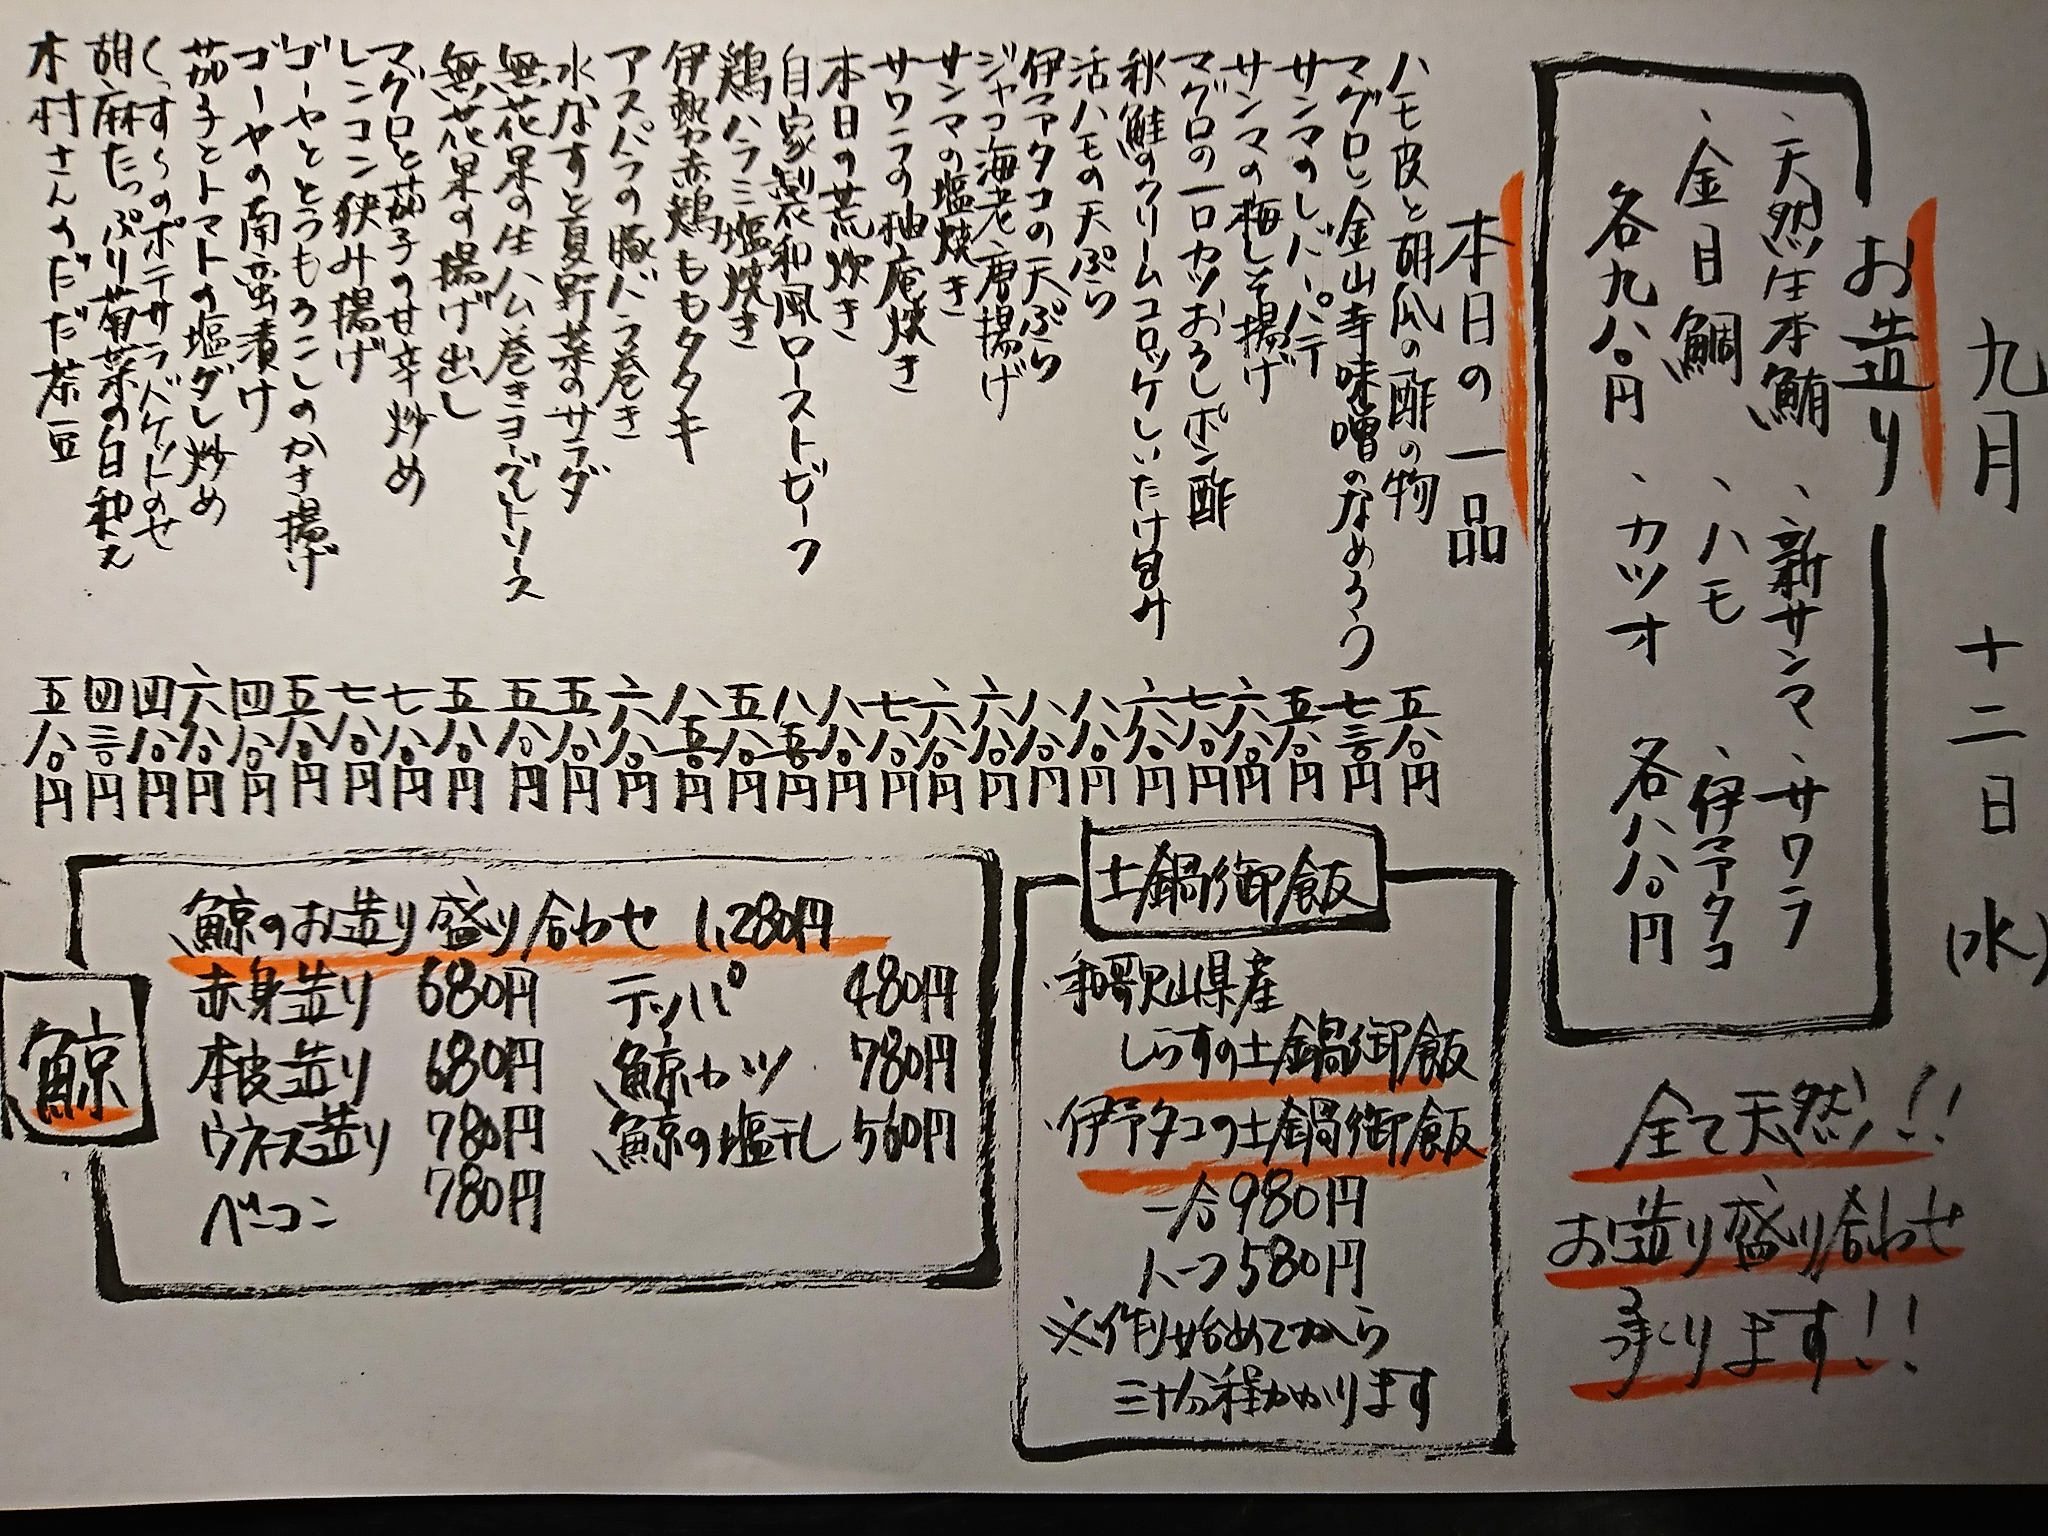 九月 十二日 (水)
お造り
、天然生本鮪 、新サンマ 、サワラ
、金目鯛 、ハモ 、伊予タコ
各九八〇円 、カツオ 各八八〇円
全て天然!!
お造り盛り合わせ
承ります!!
本日の一品
ハモ皮と胡瓜の酢の物 五八〇円
マグロと金山寺味噌のなめろう 七三〇円
サンマのレバーパテ 五八〇円
サンマの梅しそ揚げ 六八〇円
マグロの一口カツおろしポン酢 七八〇円
秋鮭のクリームコロッケしいたけ包み 六八〇円
活ハモの天ぷら 八八〇円
伊予タコの天ぷら 八八〇円
ジャコ海老唐揚げ 六八〇円
サンマの塩焼き 六八〇円
サワラの柚庵焼き 七八〇円
本日の荒炊き 八八〇円
自家製和風ローストビーフ 八五〇円
鶏ハラミ塩焼き 五八〇円
伊勢赤鶏ももタタキ 八五〇円
アスパラの豚バラ巻き 六八〇円
水なすと夏野菜のサラダ 五八〇円
無花果の生ハム巻きヨーグルトソース 五八〇円
無花果の揚げ出し 五八〇円
マグロと茄子の甘辛炒め 七八〇円
レンコン狭み揚げ 七八〇円
ゴーヤととうもろこしのかき揚げ 五八〇円
ゴーヤの南蛮漬け 四八〇円
茄子とトマトの塩ダレ炒め 六八〇円
くっすらのポテサラバケットのせ 四八〇円
胡麻たっぷり菊菜の白和え 四三〇円
木村さんのだだ茶豆 五八〇円
土鍋御飯
・和歌山県産
しらすの土鍋御飯
・伊予タコの土鍋御飯
一合980円
ハーフ580円
※作り始めてから
三十分程かかります
鯨
鯨のお造り盛り合わせ 1,280円
赤身造り 680円 テッパ 480円
本皮造り 680円 鯨カツ 780円
ウネス造り 780円 鯨の塩干し 560円
ベーコン 780円